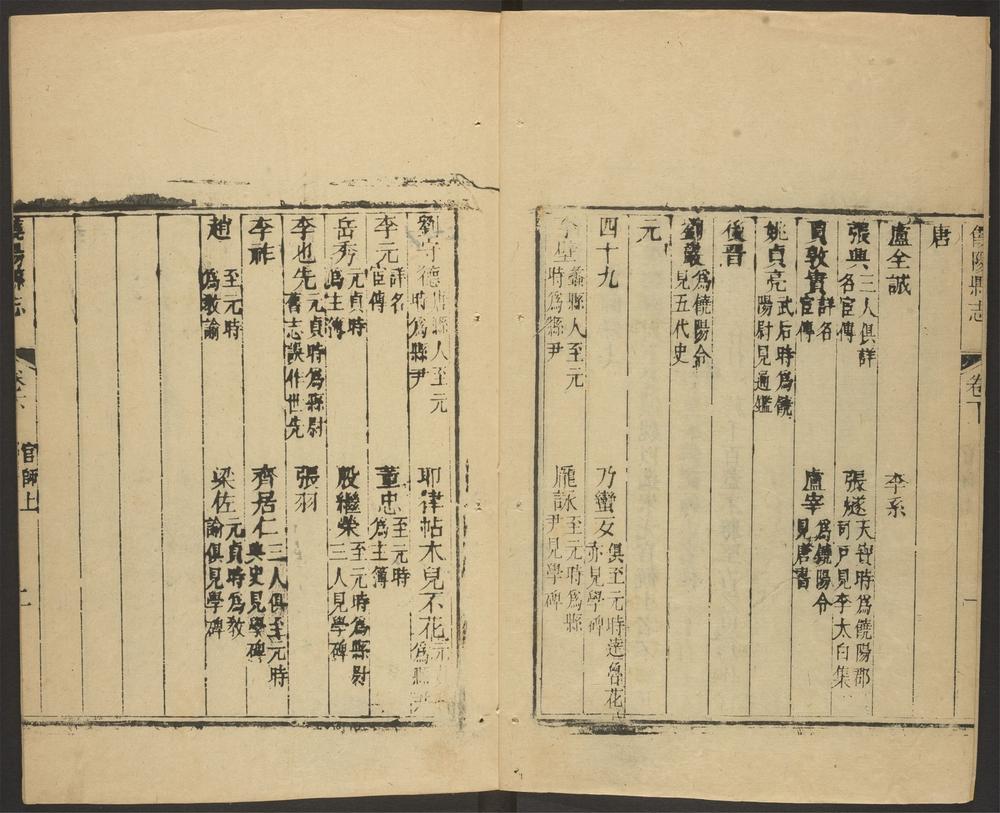 饒陽縣志
卷下
一
唐
盧全誠
李系
張興 二人俱詳名宦傳
張燧 天寶時為饒陽郡司戶見李太白集
貝敦實 詳名宦傳
盧宰 為饒陽令見唐書
姚貞亮 武后時為饒陽尉見通鑑
後晋
劉巖 為饒陽令見五代史
元
四十九
乃蠻女 俱至元時達魯花亦見學碑
李 蠡縣人至元時為縣尹
龐詠 至元時為縣尹見學碑
劉守德 唐縣人至元時為縣尹
耶律帖木兒不花 元 為縣
李元 詳名宦傳
董忠 至元時為主簿
岳秀 元貞時為主簿
殷繼榮 至元時為縣尉三人見學碑
李也先 元貞時為縣尉舊志誤作世先
張羽
李祚
齊居仁 三人俱至元時典史見學碑
趙 至元時為教諭
梁佐 元貞時為教諭俱見學碑
饒陽縣志
官師上